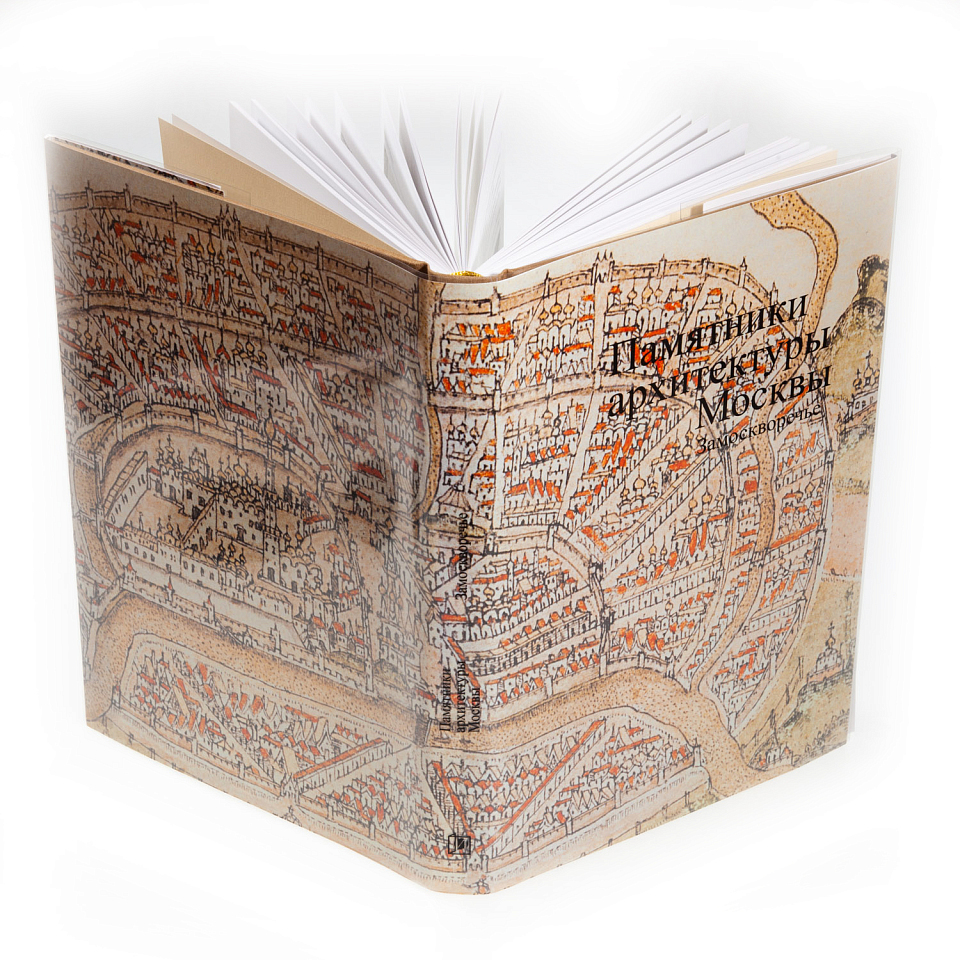 Памятники
архитектуры
Москвы
Замоскворечье
Памятники
архитектуры
Москвы
Замоскворечье